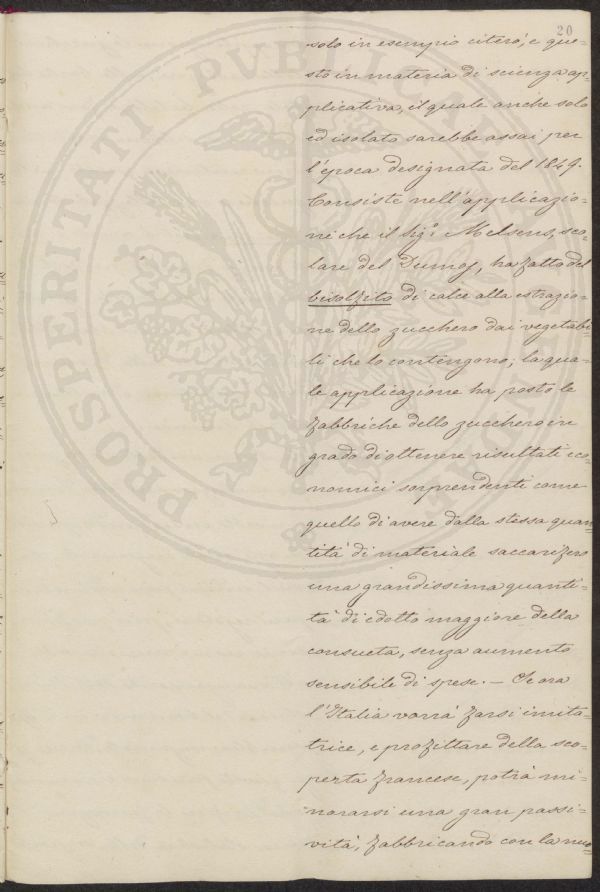 20
solo in esempio citerò, e que=
sto in materia di scienza ap=
plicativa, il quale anche solo
ed isolato sarebbe assai per
l'epoca designata del 1849.
Consiste nell'applicazio=
ne che il Sig.r Melsens, sco=
lare del Dumas, ha fatto del
bisolfito di calce alla estrazio=
ne dello zucchero dai vegetabi=
li che lo contengono; la qua=
le applicazione ha posto le
fabbriche dello zucchero in
grado di ottenere risultati eco=
nomici sorprendenti come
quello di avere dalla stessa quan=
tità di materiale saccarifero
una grandissima quanti=
tà di edotto maggiore della
consueta, senza aumento
sensibile di spese. — Se ora
l'Italia vorrà farsi imita=
trice, e profittare della sco=
perta francese, potrà mi=
norarsi una gran passi=
vità, fabbricando con la nuo=
PROSPERITATI PUBLICAE